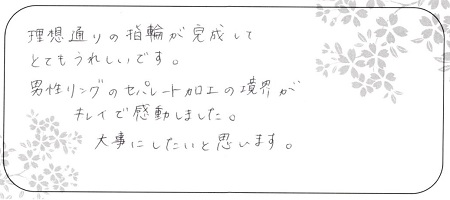 理想通りの指輪が完成して
とてもうれしいです。
男性リングのセパレート加工の境界が
キレイで感動しました。
大事にしたいと思います。